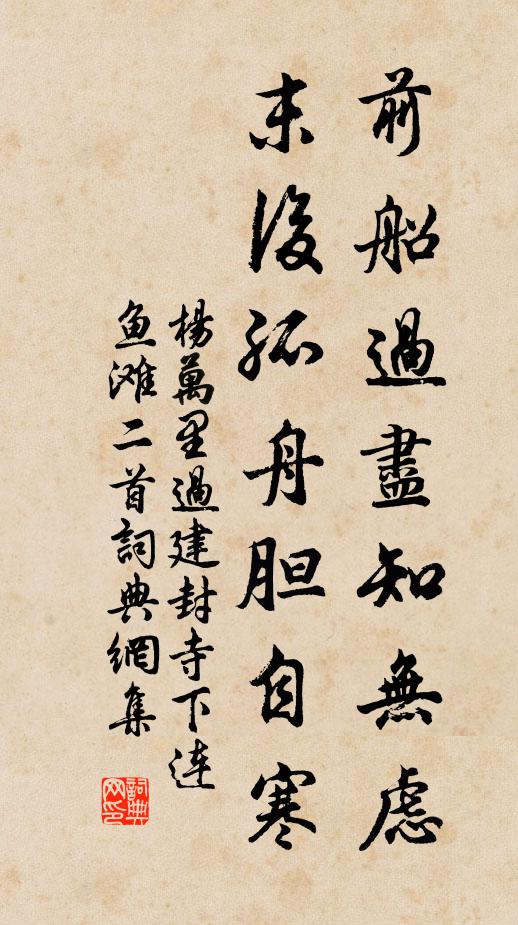 前船過盡知無慮
末後孤舟胆自寒
楊萬里過建封寺下連
鱼滩二首詞典網集
詞典网印